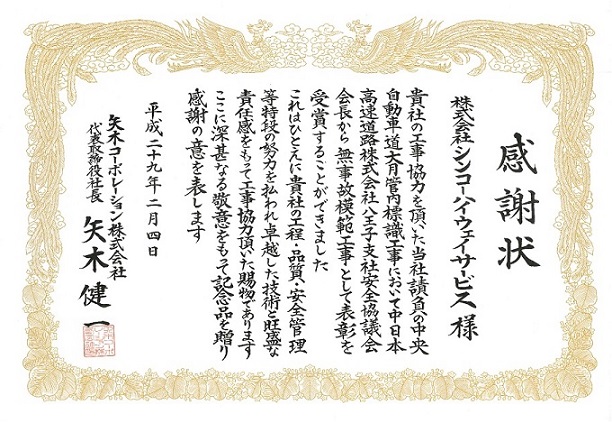 感謝状
株式会社シンコーハイウェイサービス 様
貴社の工事協力を頂いた当社請負の中央
自動車道大月管内標識工事において中日本
高速道路株式会社八王子支社安全協議会
会長から無事故模範工事として表彰を
受賞することができました
これはひとえに貴社の工程・品質・安全管理
等特段の努力を払われ卓越した技術と旺盛な
責任感をもって工事協力頂いた賜物であります
ここに深甚なる敬意をもって記念品を贈り
感謝の意を表します
平成二十九年二月四日
矢木コーポレーション株式会社
代表取締役社長 矢木健一